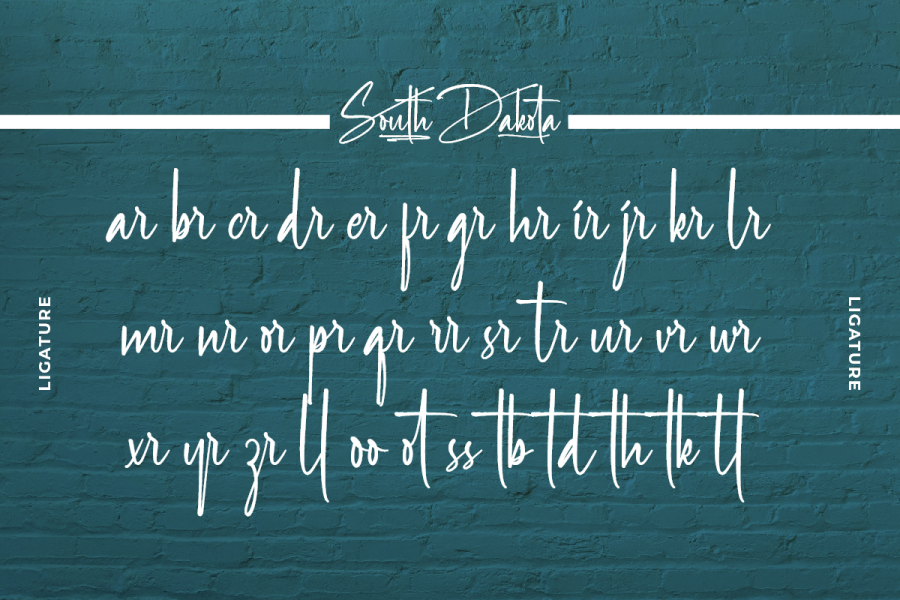 South Dakota
ar br cr dr er fr gr hr ir jr kr lr
mr nr or pr qr rr sr tr ur vr wr
xr yr zr ll oo ot ss tb td th tk tt
LIGATURE
LIGATURE